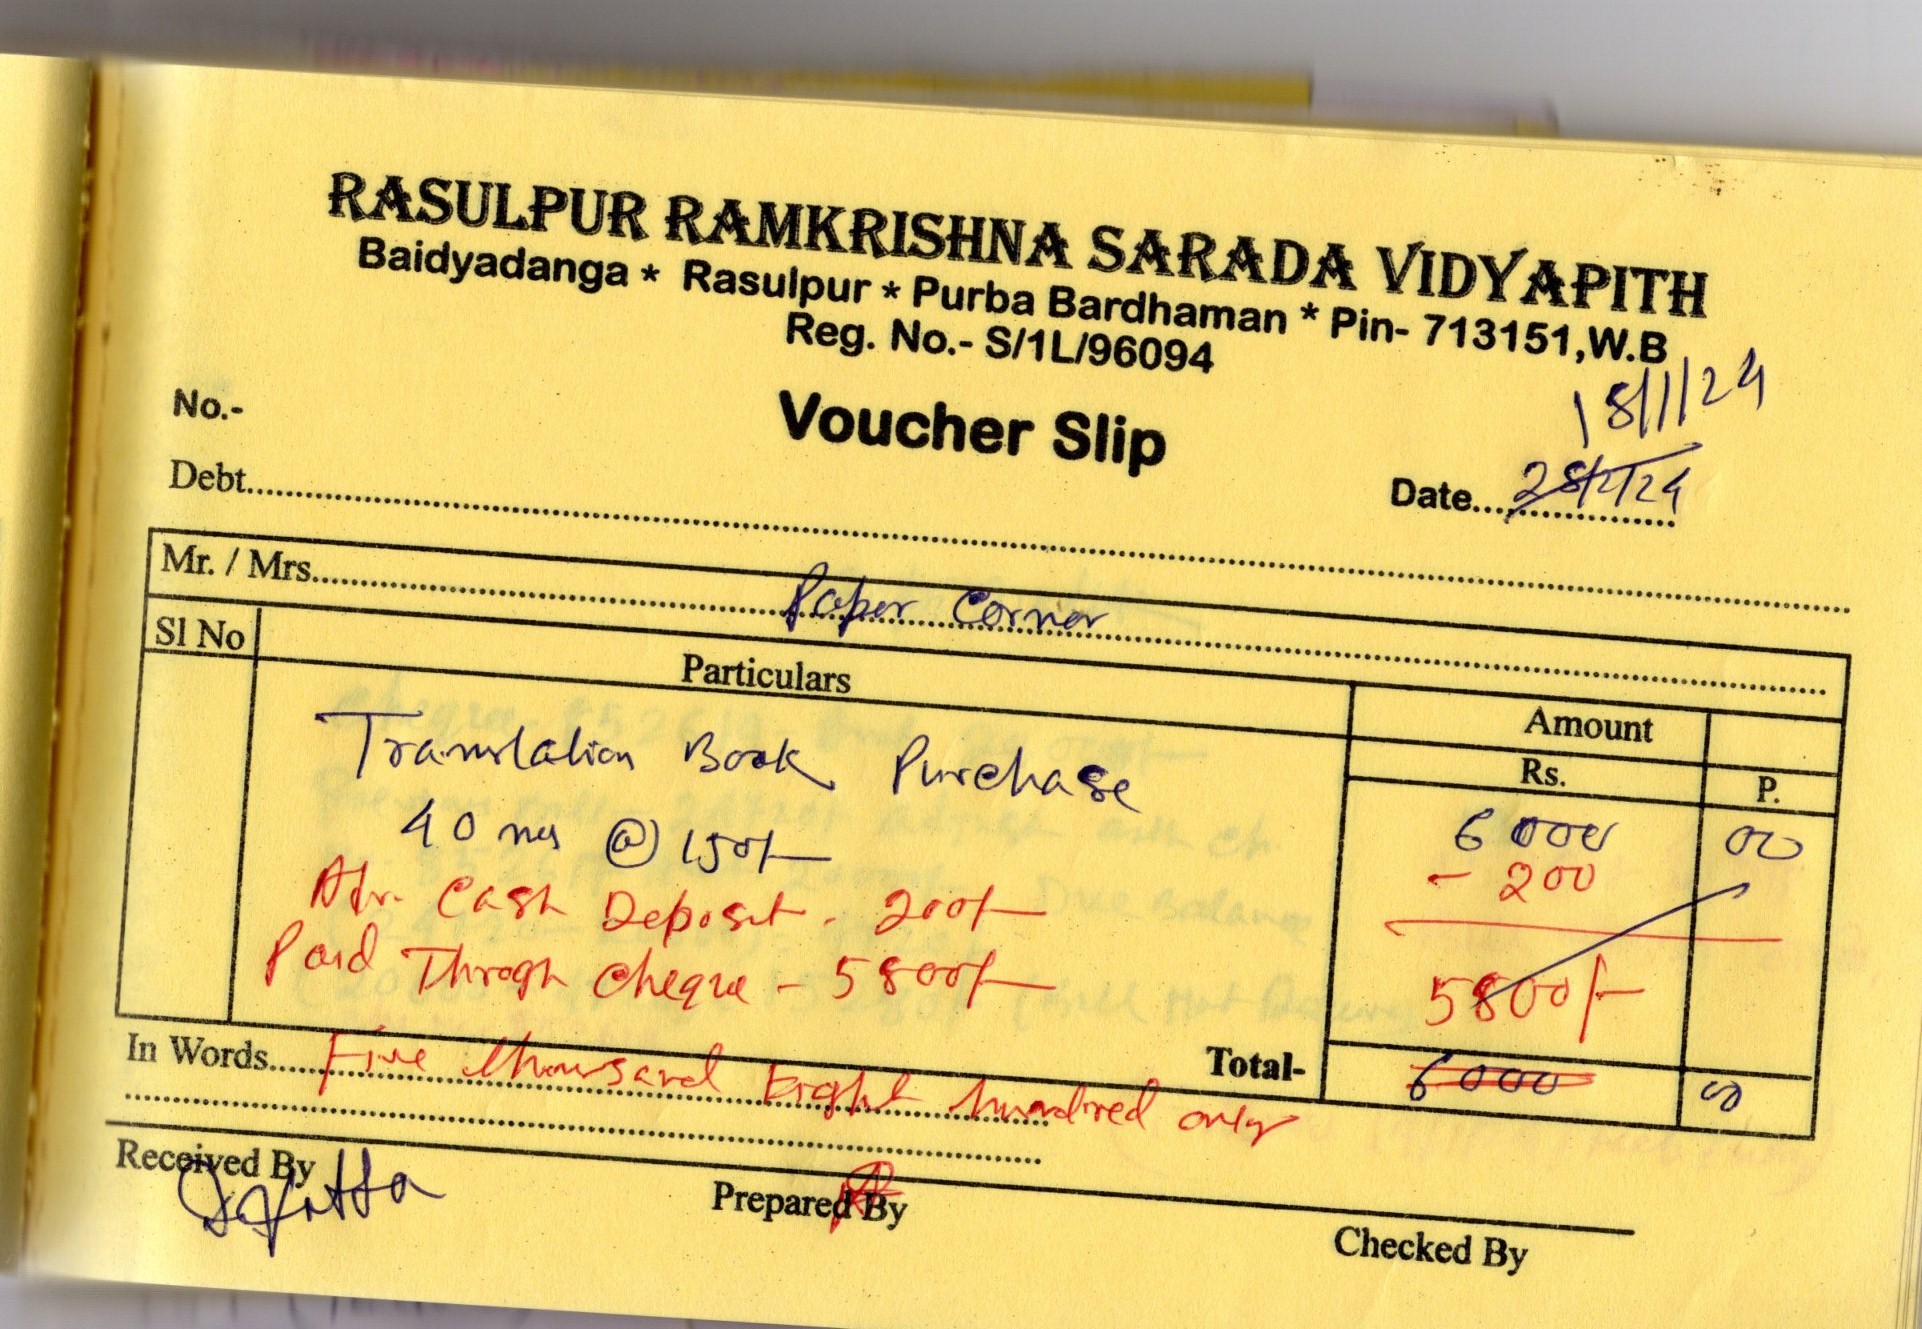 RASULPUR RAMKRISHNA SARADA VIDYAPITH
Baidyadanga * Rasulpur * Purba Bardhaman * Pin- 713151,W.B
Reg. No.- S/1L/96094
18/1/24
No.-
Voucher Slip
Date... 28/2/24
Debt
Mr. / Mrs. Paper Corner
Sl No Particulars Amount
Rs. P.
Translation Book Purchase
40 nos @ 150/- 6000 00
Adv. Cash Deposit - 200/- - 200
Paid Throgh Cheque - 5800/- 5800/-
In Words.... Five thousand Eight hundred only Total- 6000 00
Received By
Prepared By
Checked By